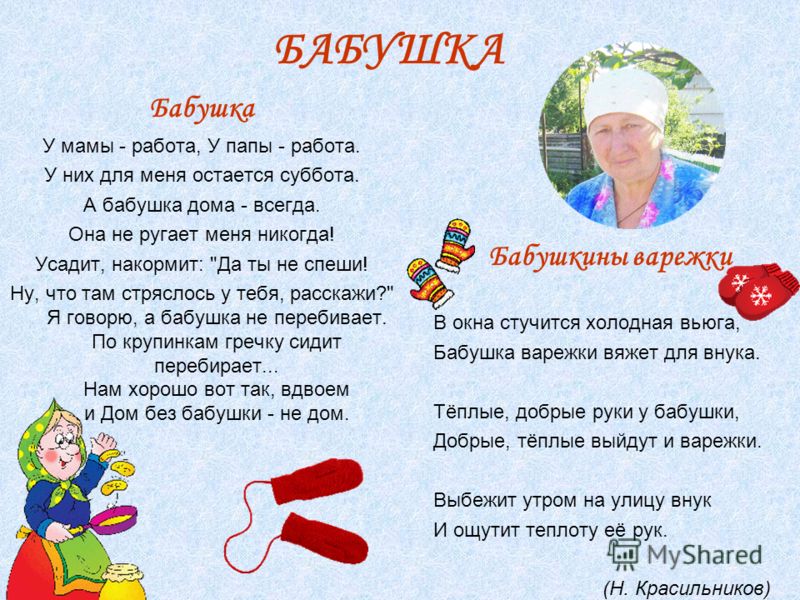 БАБУШКА
Бабушка
У мамы - работа, У папы - работа.
У них для меня остается суббота.
А бабушка дома - всегда.
Она не ругает меня никогда!
Усадит, накормит: "Да ты не спеши!
Ну, что там стряслось у тебя, расскажи?"
Я говорю, а бабушка не перебивает.
По крупинкам гречку сидит
перебирает...
Нам хорошо вот так, вдвоем
и Дом без бабушки - не дом.
Бабушкины варежки
В окна стучится холодная вьюга,
Бабушка варежки вяжет для внука.
Тёплые, добрые руки у бабушки,
Добрые, тёплые выйдут и варежки.
Выбежит утром на улицу внук
И ощутит теплоту её рук.
(Н. Красильников)
MyShared